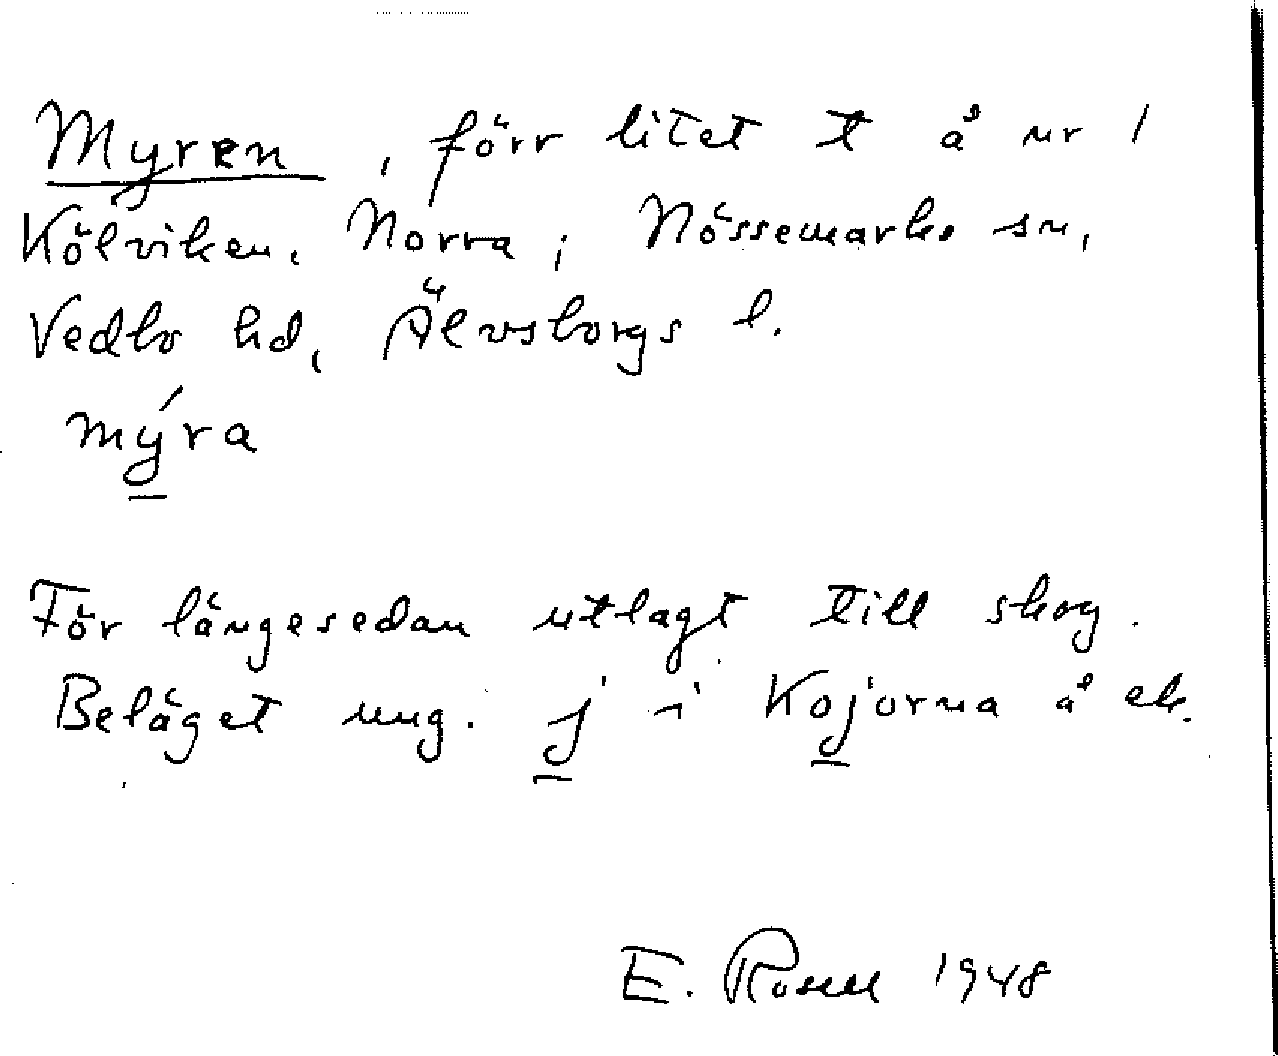 Myren, förr litet t å nr 1
Kölviken, Norra, i Nössemarks sn,
Vedbo hd, Älvsborgs l.
mýra
För längesedan utlagt till skog.
Beläget ung. j i Kojorna å ek.
E. Rosell 1948